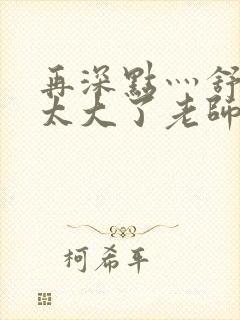 再深點灬舒
太大了老師
柯希平